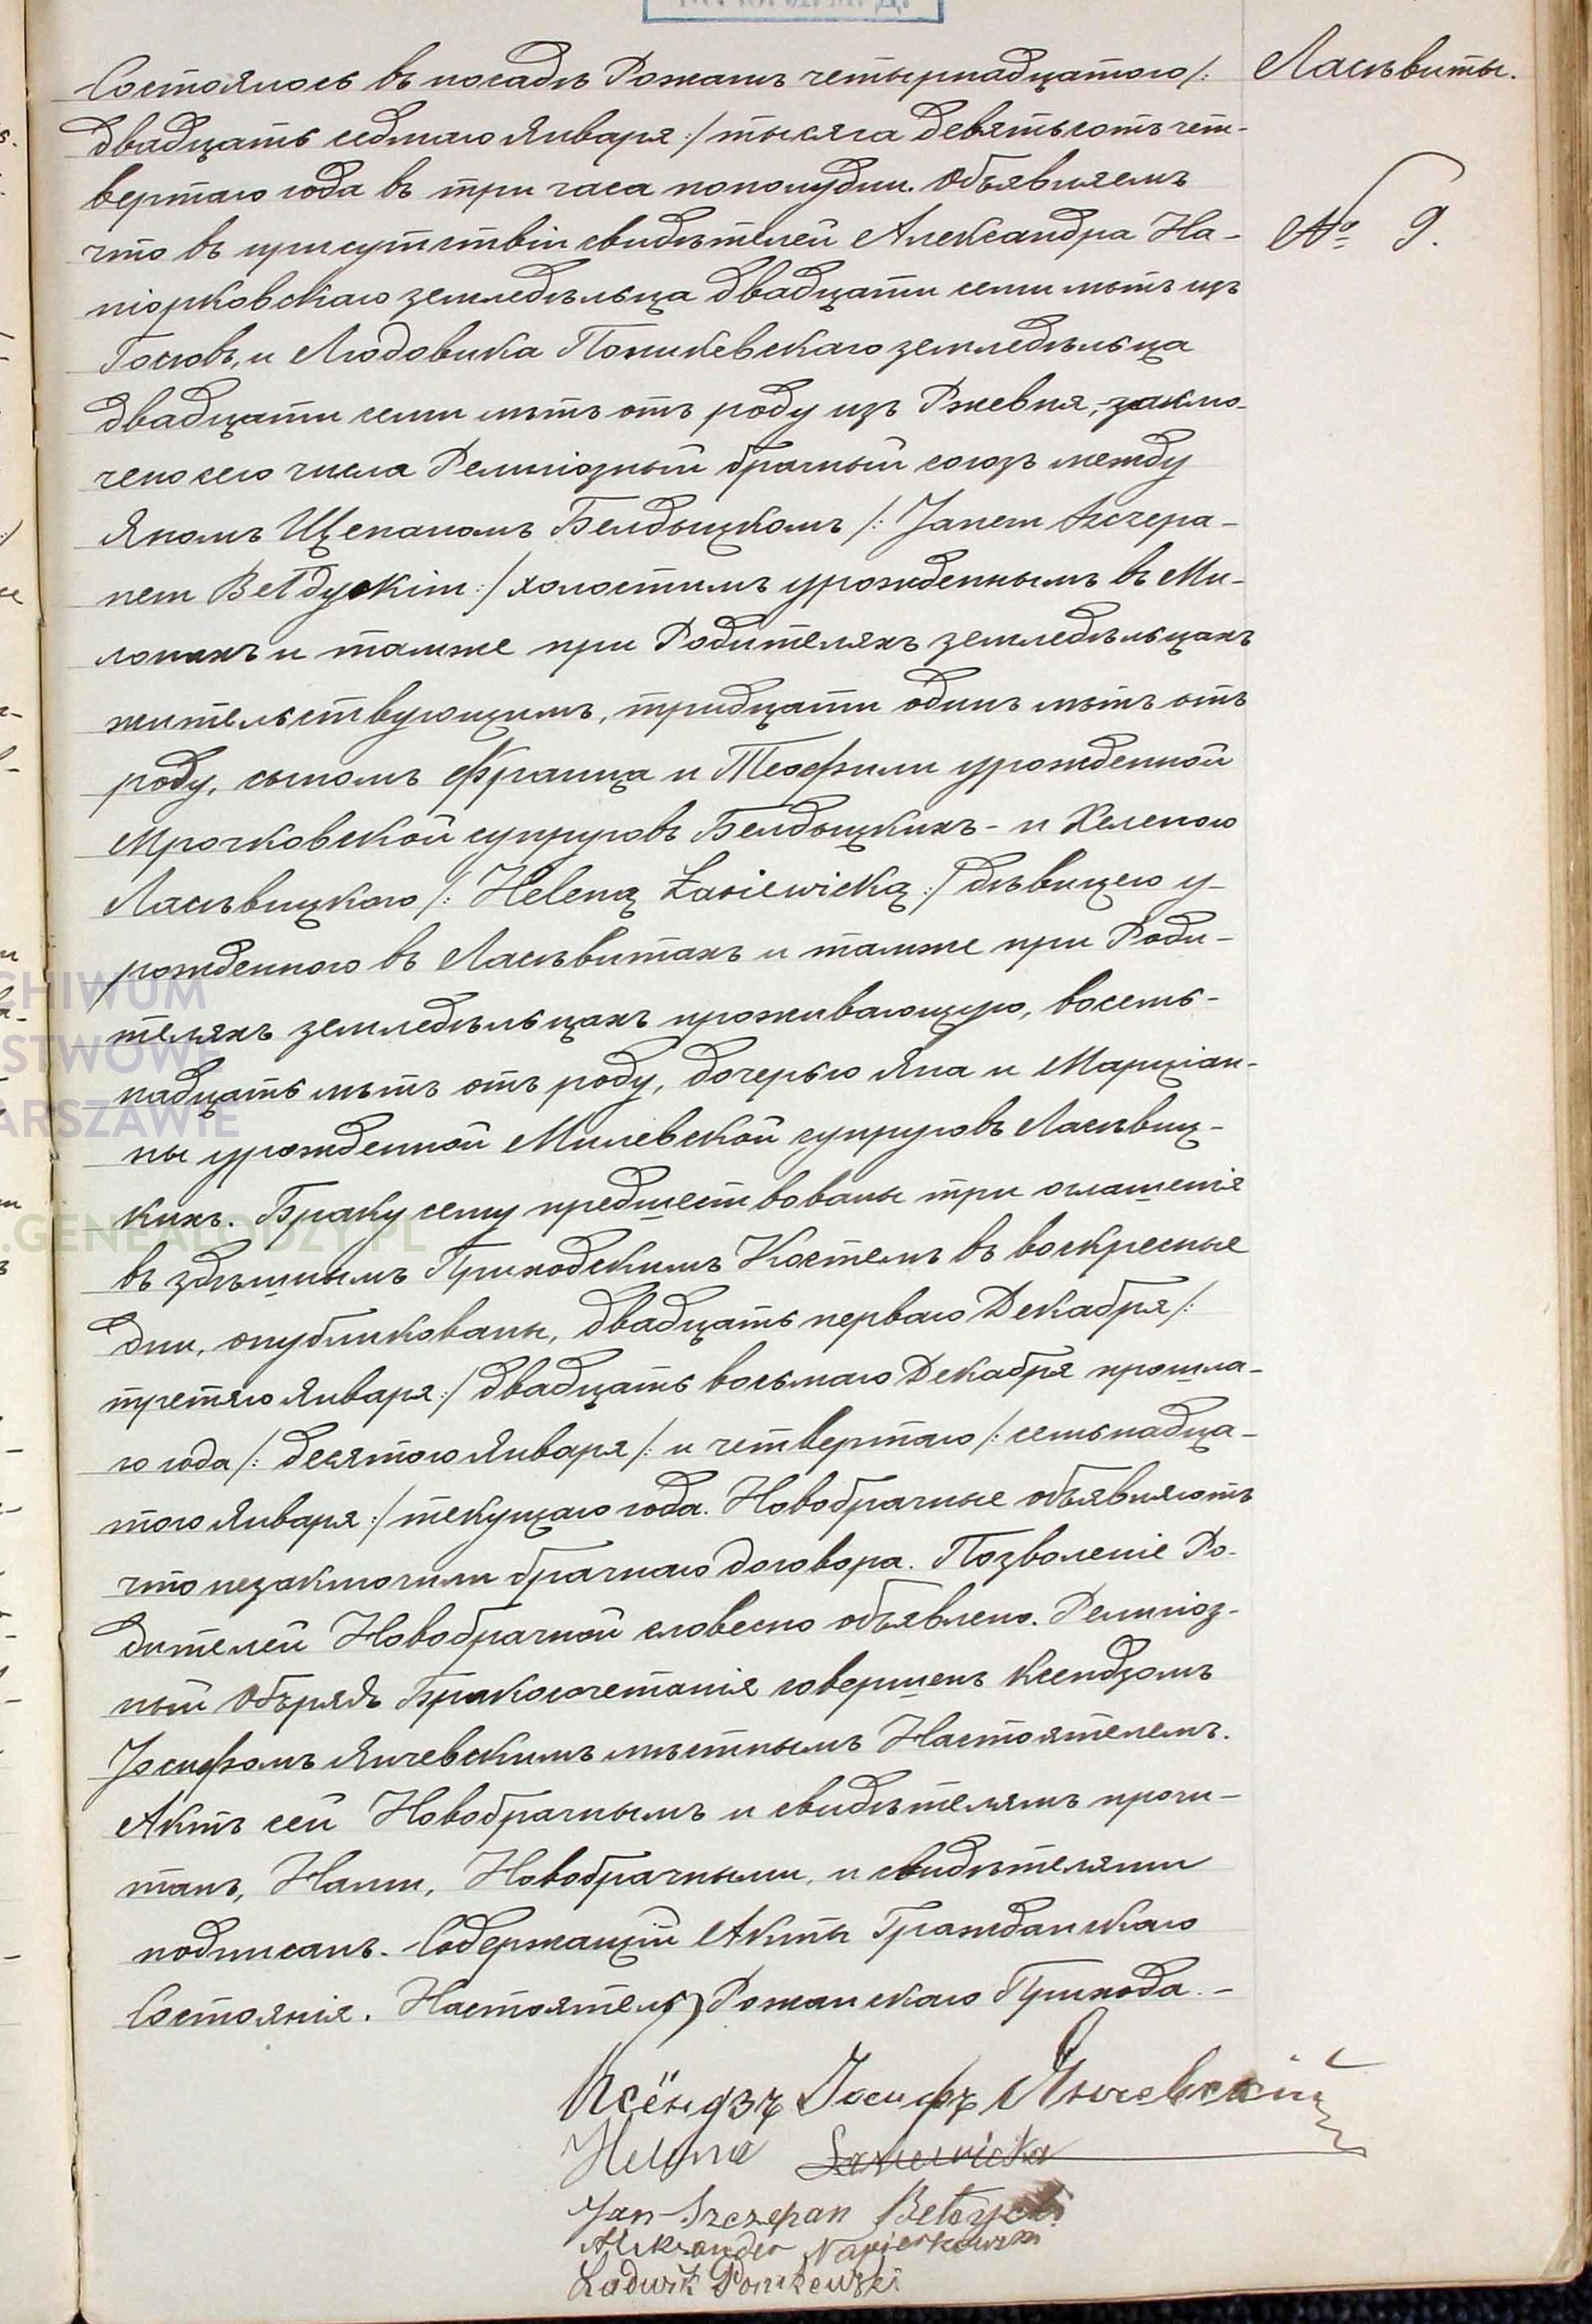 Состоялось въ посадѣ Рожанъ четырнадцатого /:
Ласѣвиты.
двадцать седмаго Января :/ тысяча девятьсотъ чет-
вертаго года въ три часа пополудни. Объявляемъ
что въ присутствіи свидѣтелей Александра На-
№ 9.
піорковскаго земледѣльца двадцати семи лѣтъ изъ
и Людовика Поникевскаго земледѣльца
двадцати семи лѣтъ отъ роду изъ Ржевня, заклю-
чено сего числа Религіозный брачный союзъ между
Яномъ Щепаномъ Белдыцкомъ /: Janem Szczepa-
nem Bełdyckim :/ холостымъ урожденнымъ въ Ми-
лонахъ и тамже при Родителяхъ земледѣльцахъ
жительствующимъ, тридцати одинъ лѣтъ отъ
роду, сыномъ Франца и Теофили урожденной
Мрочковской супруговъ Белдыцкихъ - и Хеленою
Ласѣвицкою /: Heleną Łasiewicką :/ дѣвицею у-
рожденною въ Ласѣвитахъ и тамже при Роди-
теляхъ земледѣльцахъ проживающую, восемь-
надцать лѣтъ отъ роду, дочерью Яна и Марціан-
ны урожденной Милевской супруговъ Ласѣвиц-
кихъ. Браку сему предшествованы три оглашенія
въ здѣшнымъ Приходскимъ Костелѣ въ воскресные
дни, опубликованы, двадцать перваго Декабря /:
третяго Января :/ двадцать восьмаго Декабря прошла-
го года /: десятого Января /: и четвертаго /: семьнадца-
того Января :/ текущаго года. Новобрачные объявляютъ
что незаключили брачнаго договора. Позволеніе Ро-
дителей Новобрачной словесно объявлено. Религіоз-
ный Обърядъ Бракосочетанія совершенъ Ксендзомъ
Іосифомъ Янчевскимъ мѣстнымъ Настоятелемъ.
Актъ сей Новобрачнымъ и свидѣтелямъ прочи-
танъ, Нами, Новобрачными, и свидѣтелями
подписанъ. Содержащій Акты Гражданскаго
Состоянія. Настоятель Рожанскаго Прихода. -
Ксёндзъ Іосифъ Янчевскій
Helena Łasiewicka
Jan Szczepan Bełdycki
Aleksander Napierkowski
Ludwik Ponikewski
ARCHIWUM
PAŃSTWOWE
WARSZAWIE
.GENEALODZY.PL